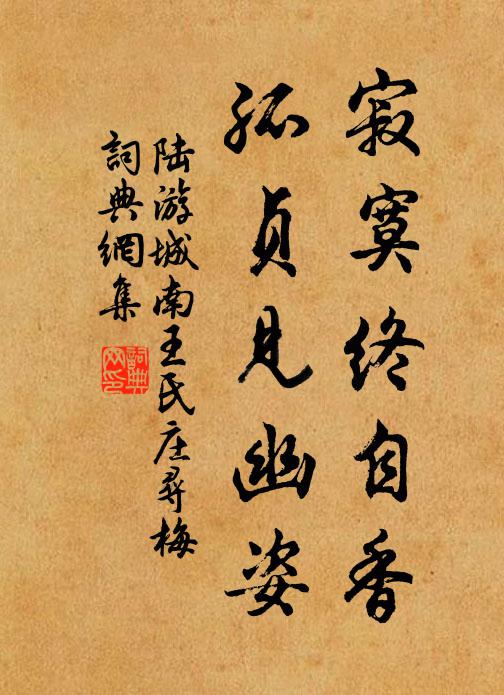 寂寞終自香
孤貞見幽姿
陆游城南王氏庄尋梅
詞典網集
詞典網印